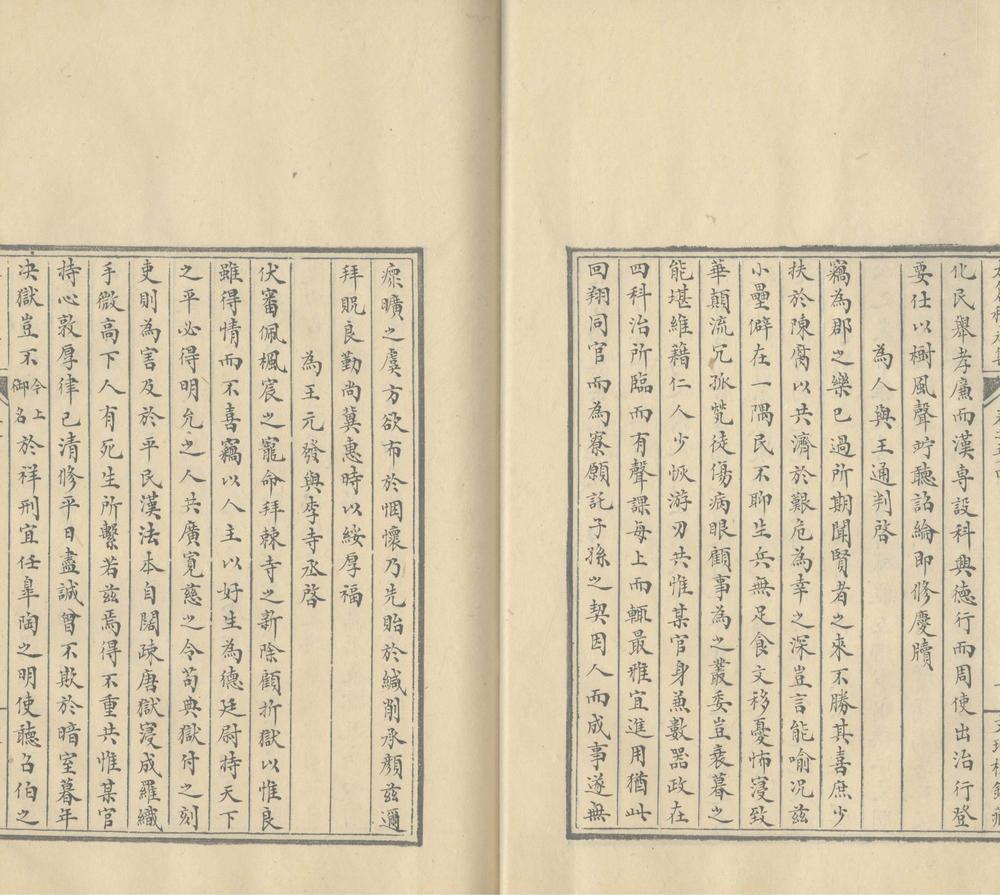 化民舉孝廉而漢専設科興徳行而周使出治行登
要任以樹風聲竚聽詔綸即修慶牘
為人與王通判啓
竊為郡之樂已過所期聞賢者之來不勝其喜庶少
扶於陳腐以共濟於艱危為幸之深豈言能喻况兹
小壘僻在一隅民不聊生兵無足食文移憂怖寖致
華顛流冗孤煢徒傷病眼顧事為之叢委豈衰暮之
能堪維藉仁人少恢游刃共惟某官身兼數器政在
四科治所臨而有聲課每上而輒最雅宜進用猶此
回翔同官而為寮願託子孫之契因人而成事遂無
瘝曠之虞方欲布於悃懷乃先貽於緘削承顔兹邇
拜貺良勤尚冀惠時以綏厚福
為王元發與李寺丞啓
伏審佩楓宸之寵命拜棘寺之新除顧折獄以惟良
雖得情而不喜竊以人主以好生為德廷尉持天下
之平必得明允之人共廣寛慈之令苟典獄付之刻
吏則為害及於平民漢法本自闊疎唐獄寖成羅織
手微高下人有死生所繫若兹焉得不重共惟某官
持心敦厚律己清修平日盡誠曾不欺於暗室暮年
决獄豈不今上御名於祥刑宜任臯陶之明使聽召伯之